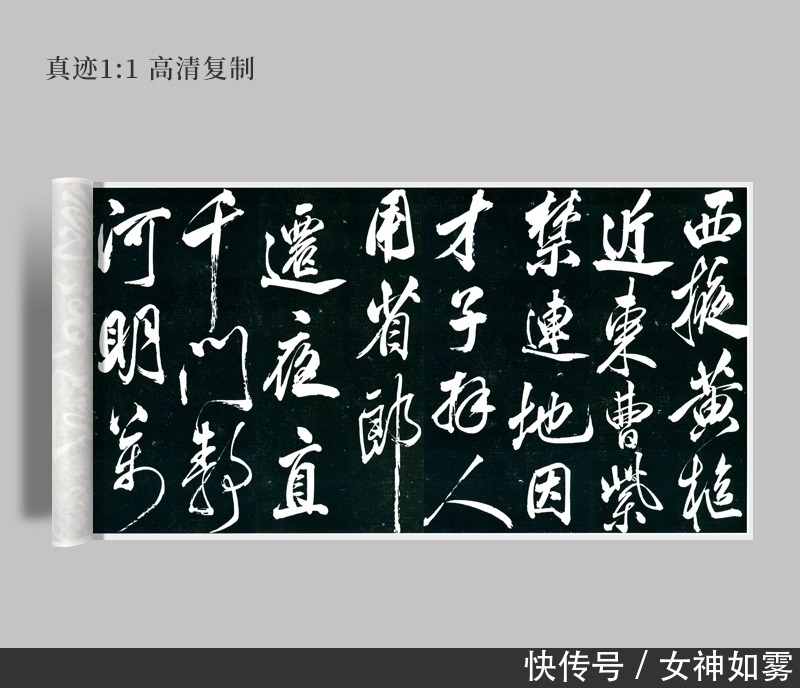 真迹1:1 高清复制
西掖黄樞
近東曹紫
禁連地因
才子拜人
用省郎
遷夜直
千門静
河明萬
快传号 / 女神如雾